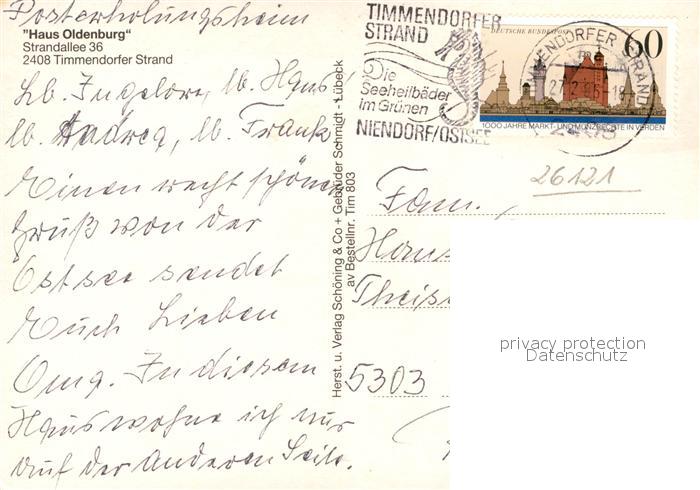 Posterholungsheim
"Haus Oldenburg"
Strandallee 36
2408 Timmendorfer Strand
Lb. Ingelore, lb. Hans
lb. Andrea, lb. Frank,
Einen recht schönen
Gruß von der
Ostsee sendet
Euch Lieben
Oma. In diesem
Haus wohne ich nur
auf der anderen Seite.
Herst. u. Verlag Schöning & Co + Gebrüder Schmidt - Lübeck
av Bestellnr. Tim 803
TIMMENDORFER
STRAND
Die
Seeheilbäder
im Grünen
NIENDORF/OSTSEE
DEUTSCHE BUNDESPOST
60
1000 JAHRE MARKT- UND MÜNZRECHTE IN VERDEN
TIMMENDORFER STRAND
26121
Fam.
Hans
Theis
5303
privacy protection
Datenschutz